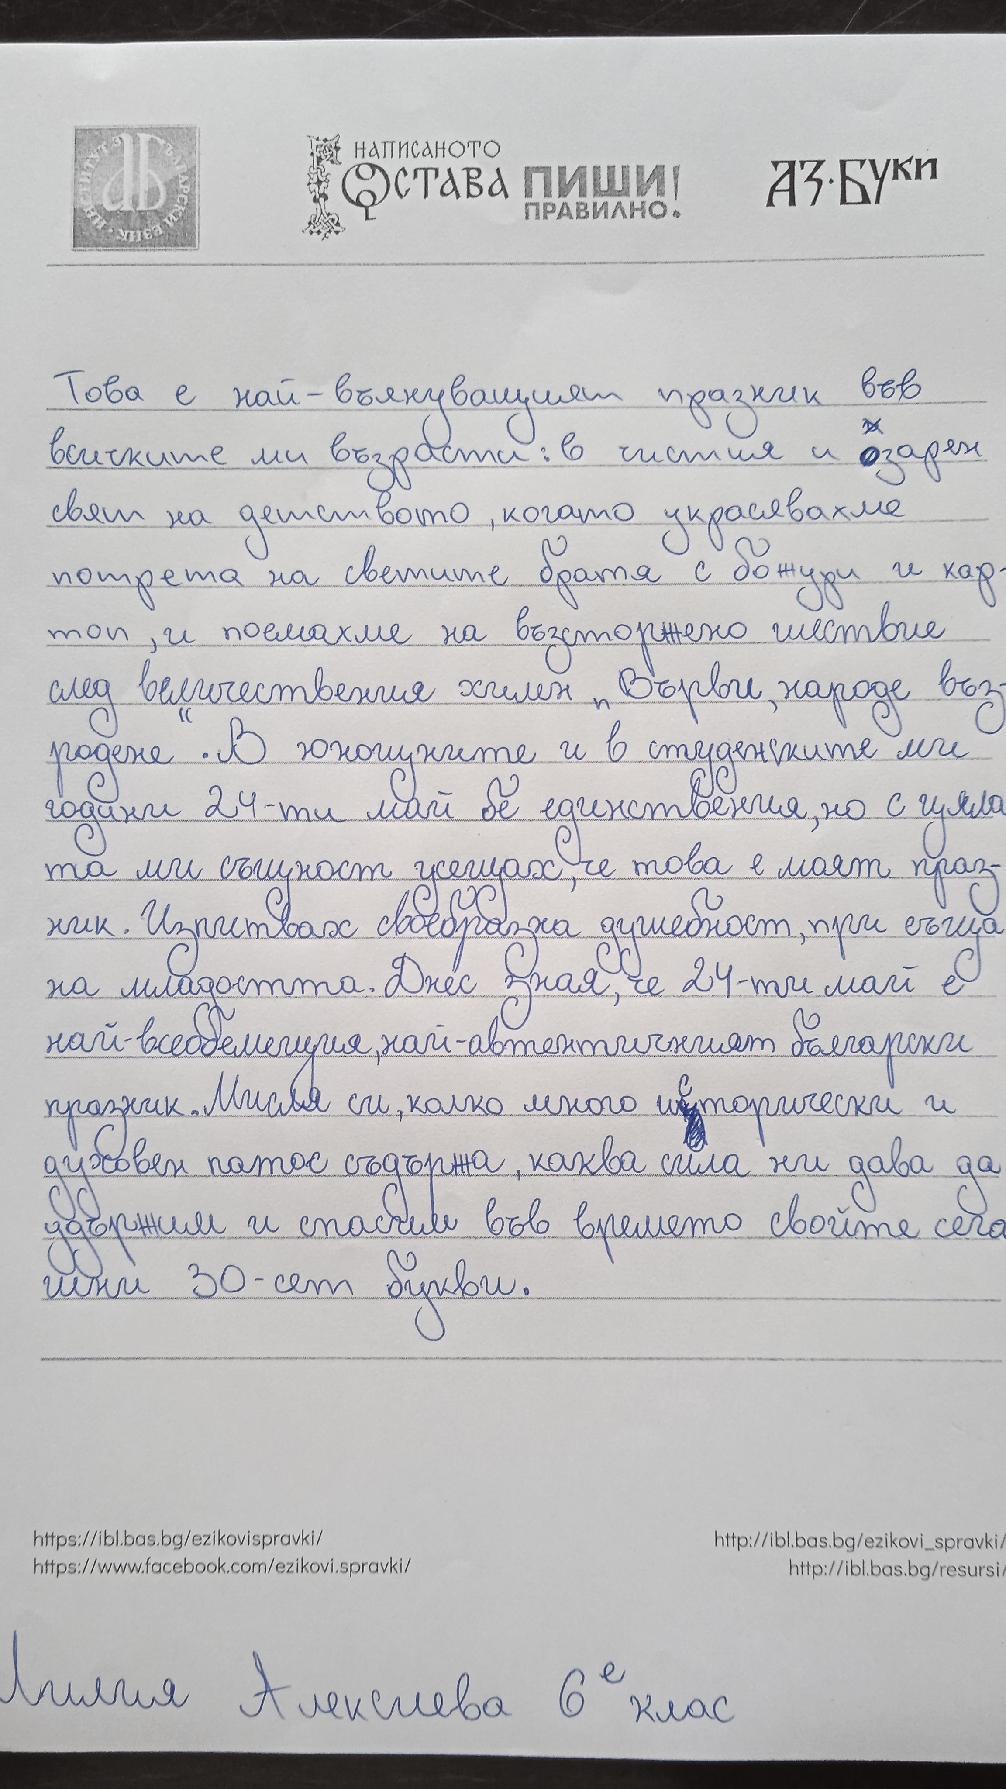 ИНСТИТУТ ЗА БЪЛГАРСКИ ЕЗИК
НАПИСАНОТО
ОСТАВА
ПИШИ
ПРАВИЛНО!
АЗ·БУКИ
Това е най-вълнуващият празник във
всичките ми възрасти: в чистия и озарен
свят на детството, когато украсявахме
потрета на светите братя с божури и кар-
топ, и поемахме на възторжено шествие
след величествения химн „Върви, народе въз-
родене“. В юношуните и в студенските ми
години 24-ти май бе единствения, но с цяла
та ми същност усещах, че това е моят праз-
ник. Изпитвах своеобразна душевност, при същца
на младостта. Днес зная, че 24-ти май е
най-всеобемещия, най-автентичният български
празник. Мисля си, колко много исторически и
духовен патос съдържа, каква сила ни дава да
удържим и спасим във времето свойте сега
шни 30-сет букви.
https://ibl.bas.bg/ezikovispravki/
https://www.facebook.com/ezikovi.spravki/
http://ibl.bas.bg/ezikovi_spravki/
http://ibl.bas.bg/resursi/
Лилия Алексиева 6е клас